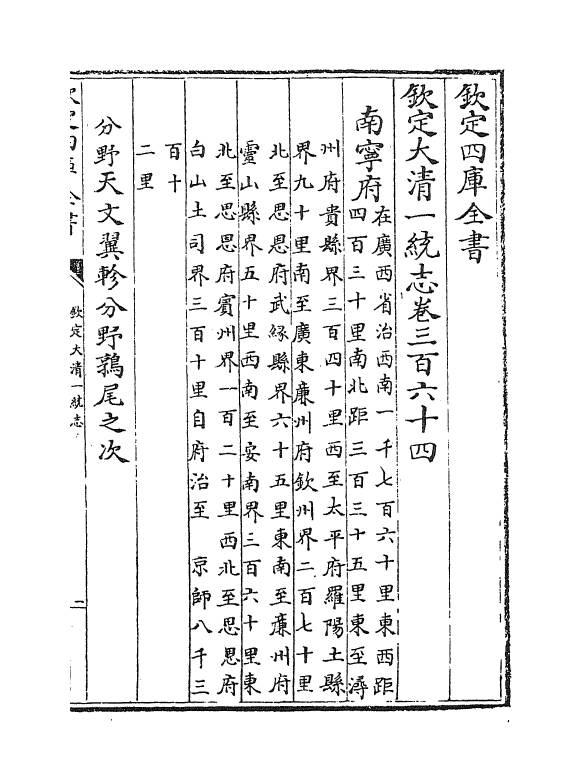 欽定四庫全書
欽定大清一統志卷三百六十四
南寧府
在廣西省治西南一千七百六十里東西距
四百三十里南北距三百三十五里東至潯
州府貴縣界三百四十里西至太平府羅陽土縣
界九十里南至廣東廉州府欽州界二百七十里
北至思恩府武緣縣界六十五里東南至廉州府
靈山縣界五十里西南至安南界三百六十里東
北至思恩府賓州界一百二十里西北至思恩府
白山土司界三百十里自府治至 京師八千三
百十
二里
分野天文翼軫分野鶉尾之次
欽定四庫全書
欽定大清一統志
二